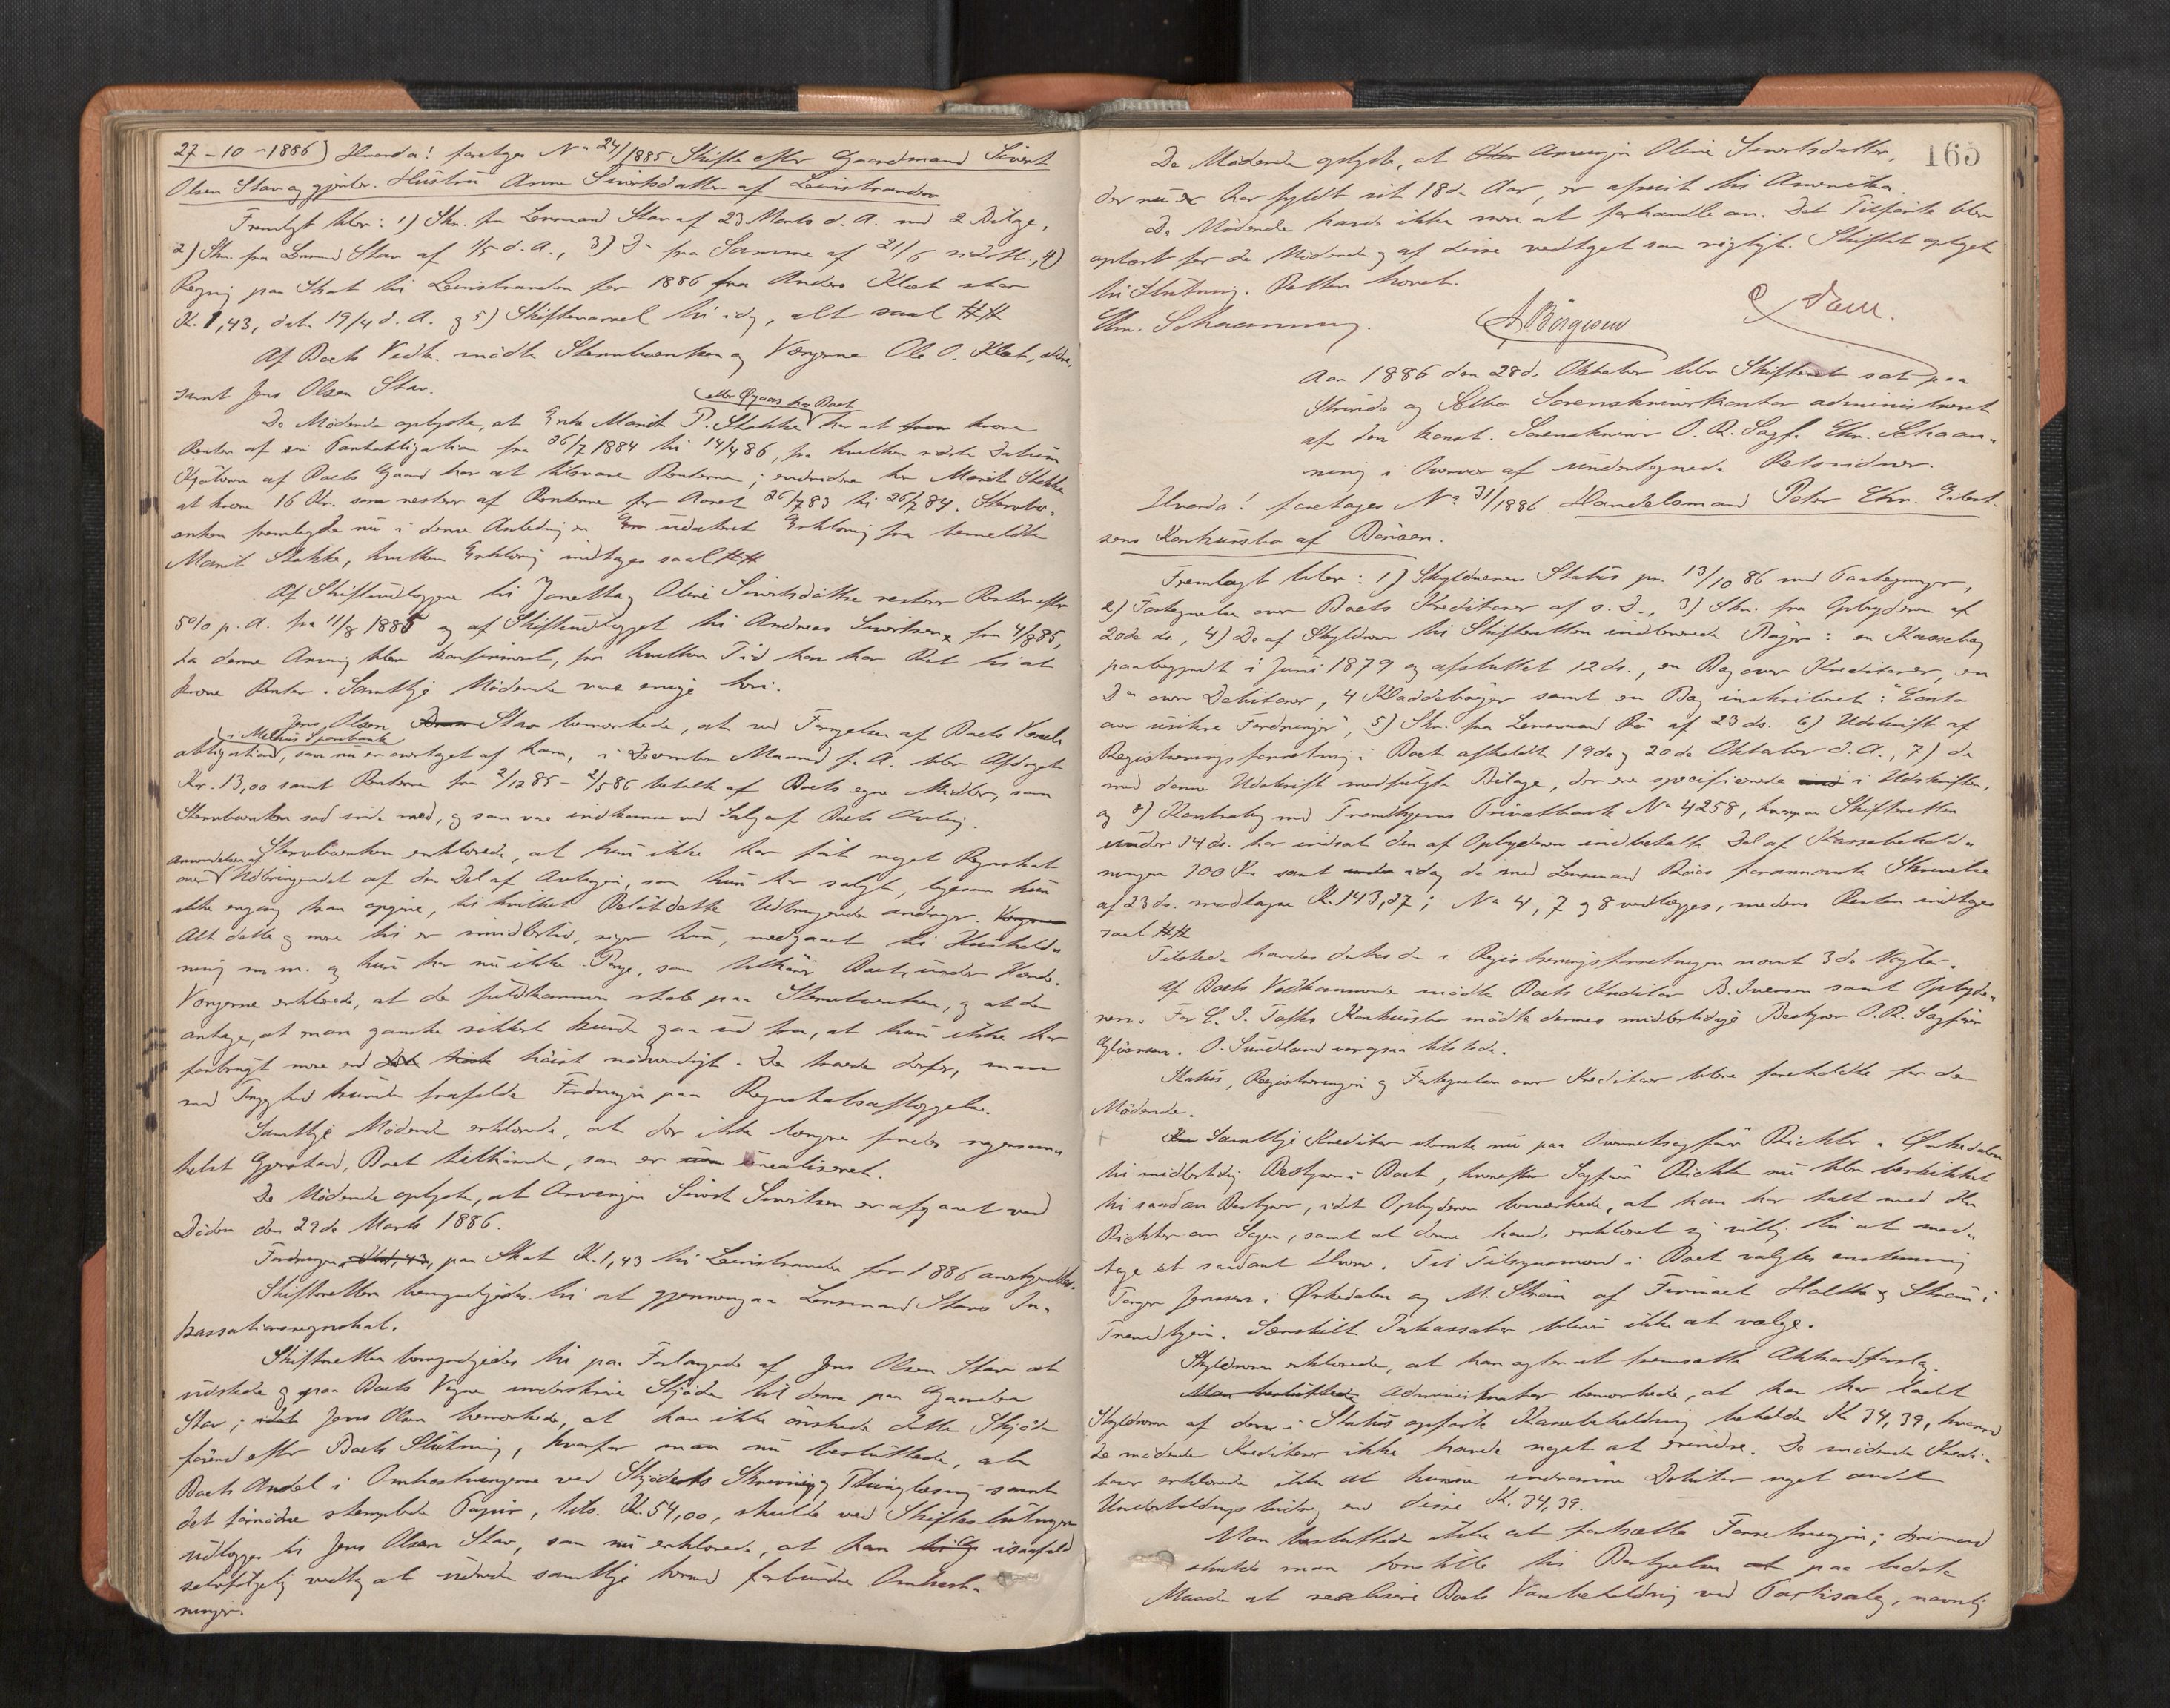 27-10-1886) Hvorda! foretoges No 24/1885 Skifte efter Gaardmand Sivert
Olsen Stav og gjenlev. Hustru Anne Sivertsdatter af Leinstranden
Fremlagt blev: 1) Skr. fra Lensmand Stav af 23 Marts d. A. med 2 Bilage,
2) Skr. fra Lensmd Stav af 1/5 d. A., 3) Do fra Samme af 21/6 sidstl., 4)
Regng paa Skat til Leinstranden for 1886 fra Anders Klæt stor
K. 1,43, dat. 19/4 d. A. og 5) Skiftevarsel til idag, alt saal. ##
Af Boets Vedk. mødte Stervboenken og Værgerne Ole O. Klæt, ældre,
samt Jens Olsen Stav.
De Mødende oplyste, at Enke Marit P. Stokke har at kræve
Renter af en Pantobligation fra 26/7 1884 til 14/4 86, fra hvilken sidste Datum
Kjøberen af Boets Gaard har at tilsvare Renterne; endvidere har Marit Stokke
at kræve 16 Kr. som resterer af Renterne for Aaret 26/7 83 til 26/7 84. Stervbo-
enken fremlagde nu i denne Anledning en udateret Erklæring fra bemeldte
Marit Stokke, hvilken Erklæring indtages saal ##
Af Skifteudlæggene til Janetta og Oline Sivertsdøttre resterer Renter efter
5% p. A. fra 11/8 1885 og af Skifteudlægget til Andreas Sivertsen fra 4/8 85,
da denne Arving blev konfirmeret, fra hvilken Tid han har Ret til at
kræve Renter. Samtlige Mødende vare enige heri.
Jens Olsen Stav bemærkede, at ved Fornyelsen af Boets Vexel-
obligation i Melhus Sparebank, som nu er overtaget af ham, i December Maaned f. A. blev Afdraget
Kr. 13,00 samt Renterne fra 2/12 85 - 2/5 86 betalt af Boets egne Midler, som
Stervboenken sad inde med, og som var indkomne ved Salg af Boets Avling.
Stervboenken erklærede, at hun ikke har ført noget Regnskab
over Anvendelsen af Udbringendet af den Del af Avlingen, som hun har solgt, ligesom hun
ikke engang kan opgive, til hvilket Beløb dette Udbringende andrager.
Alt dette og mere til er imidlertid, siger hun, medgaaet til Hushold-
ning m. m. og hun har nu ikke Penge, som tilhører Boet, under Hænder.
Værgerne erklærede, at de fuldkommen stole paa Stervboenken, og at de
antage, at man ganske sikkert kunde gaa ud fra, at hun ikke har
forbrugt mere end høist nødvendigt. De troede derfor, man
med Tryghed kunde frafalde Fordringen paa Regnskabsaflæggelse.
Samtlige Mødende erklærede, at der ikke længere findes nogensom-
helst Gjenstand, Boet tilhørende, som er urealiseret.
De Mødende oplyste, at Arvingen Sivert Sivertsen er afgaaet ved
Døden den 29de Marts 1886.
Fordringen, paa Skat K. 1,43 til Leinstranden for 1886 anerkjendtes.
Skifteretten bemyndigedes til at gjennemgaa Lensmand Stavs In-
kassationsregnskab.
Skifteretten bemyndigedes til paa Forlangende af Jens Olsen Stav at
udstede og paa Boets Vegne underskrive Skjøde til denne paa Gaarden
Stav; Jens Olsen bemærkede, at han ikke ønskede dette Skjøde
førend efter Boets Slutning, hvorfor man nu besluttede, at
Boets Andel i Omkostningerne ved Skjødets Skrivning og Thinglæsning samt
det fornødne stemplede Papir, tils. K. 54,00, skulde ved Skifteslutningen
udlægges til Jens Olsen Stav, som nu erklærede, at han isaafald
selvfølgelig vedtog at udrede samtlige hermed forbundne Omkost-
ninger.
165
De Mødende oplyste, at Arvingen Oline Sivertsdatter,
der nu har fyldt sit 18de Aar, er afreist til Amerika.
De Mødende havde ikke mere at forhandle om. Det Tilførte blev
oplæst for de Mødende og af disse vedtaget som rigtigt. Skiftet optaget
til Slutning. Retten hævet.
Chr. Schaanning. A. Børgesen
Aar 1886 den 28de Oktober blev Skifteret sat paa
Strinda og Selbo Sorenskriverkontor administreret
af den konst. Sorenskriver O. R. Sagf. Chr. Schaan-
ning i Overvær af undertegnede Retsvidner.
Hvorda! foretages No 31/1886 Handelsmand Peter Chr. Eilert-
sens Konkursbo af Børsen.
Fremlagt blev: 1) Skyldnerens Status pr. 13/10 86 med Paategninger,
2) Fortegnelse over Boets Kreditorer af s. D., 3) Skr. fra Opbyderen af
20de ds., 4) De af Skyldneren til Skifteretten indleverede Bøger: en Kassebog
paabegyndt i Juni 1879 og afsluttet 12 ds., en Bog over Kreditorer, en
Do over Debitorer, 4 Kladdebøger samt en Bog inskriberet: "Conto
over usikre Fordringer", 5) Skr. fra Lensmand Bö af 23 ds. 6) Udskrift af
Registreringsforretning i Boet afholdt 19de og 20de Oktober d. A., 7) de
med denne Udskrift medfulgte Bilage, der ere specificerede i Udskriften,
og 8) Kontrabog med Trondhjems Privatbank No 4258, hvorpaa Skifteretten
under 14 ds. har indsat den af Opbyderen indbetalte Del af Kassebehold-
ningen 100 Kr samt idag de med Lensmand Böes foranævnte Skrivelse
af 23 ds. modtagne K. 143,27; No 4, 7 og 8 vedlægges, medens Resten indtages
saal ##
Tilstede havdes derhos de i Registreringsforretningen nævnte 3de Nøgler.
Af Boets Vedkommende mødte Boets Kreditor B. Iversen samt Opbyde-
ren. For C. J. Tofts Konkursbo mødte dennes midlertidige Bestyrer O. R. Sagfører
O. Sundland var ogsaa tilstede.
Status, Registreringen og Fortegnelsen over Kreditorer bleve foreholdte for de
Mødende.
Samtlige Kreditorer stemte nu paa Overretssagfører Richter i Ørkedalen
til midlertidig Bestyrer i Boet, hvorefter Sagfører Richter nu blev beskikket
til saadan Bestyrer, idet Opbyderen bemærkede, at han har talt med Hr
Richter om Sagen, samt at denne havde erklæret sig villig til at mod-
tage et saadant Hverv. Til Tilsynsmænd i Boet valgtes enstemmig
Torger Jenssen i Ørkedalen og M. Strøm af Firmaet Holtte & Strøm i
Trondhjem. Særskilt Inkassator bliver ikke at vælge.
Skyldneren erklærede, at han agter at fremsætte Akkordforslag.
Administrator bemærkede, at han har ladt
Skyldneren af den i Status opførte Kassebeholdning beholde K 34,39, hvorved
de mødende Kreditorer ikke havde noget at erindre. De mødende Kredi-
torer erklærede ikke at kunne indrømme Debitor noget andet
Underholdningsbidrag end disse K. 34,39.
Man besluttede ikke at fortsætte Forretningen; derimod
skulde man henstille til Bestyrelsen paa bedste
Maade at realisere Boets Varebeholdning ved Partisalg, navnlig